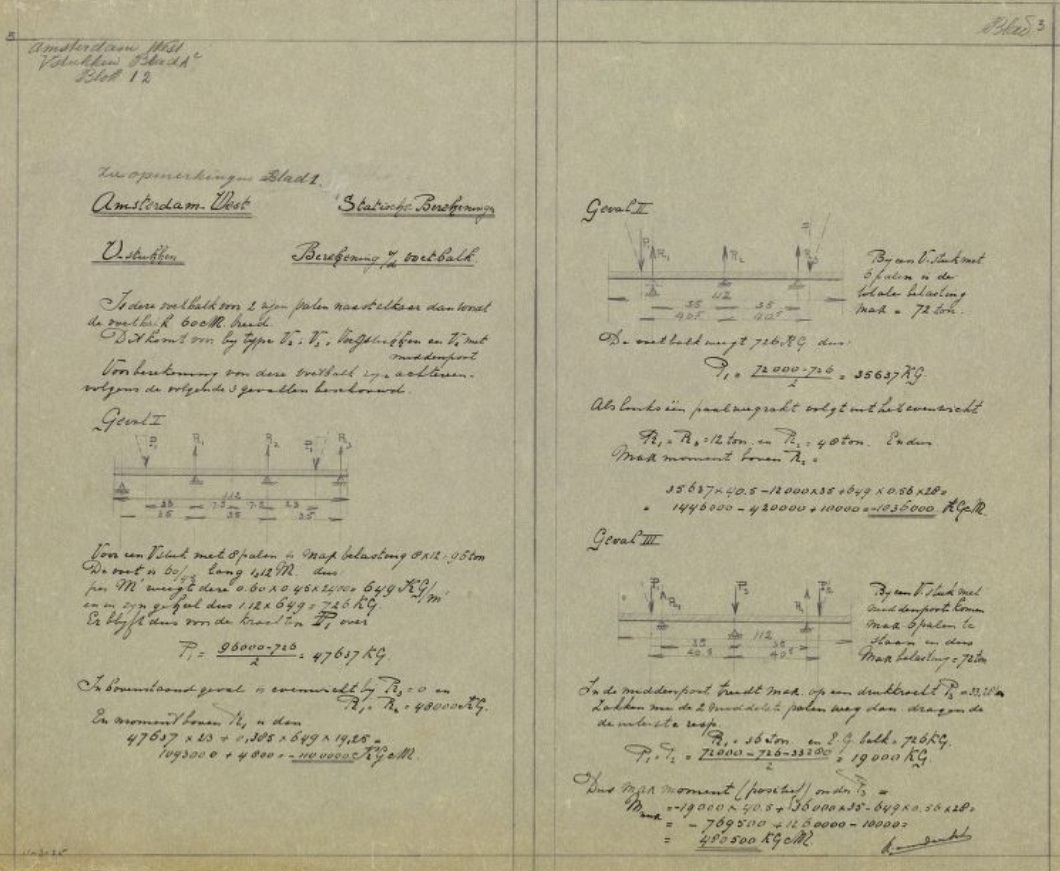 Amsterdam West
V stukken Blad
Blok 12
Zie opmerkingen Blad 1.
Amsterdam-West Statische Berekeningen
V-stukken Berekening v/d voetbalk.
Iedere voetbalk voor 2 rijen palen naast elkaar dan wordt
de voetbalk 60 cM. breed.
Dit komt voor bij type V2, V3, en V6 met
middenpoot
Voor berekening van deze voetbalk zijn achtereen-
volgens de volgende 3 gevallen beschouwd.
Geval I
P1 R1 R2 P1 R3
112
23 7.5 7.5 23
35 35 35
Voor een V stuk met 8 palen is max belasting 8x12 = 96 ton
De voet is 60/45 lang 1,12 M. dus
per M' weegt deze 0.60 x 0.45 x 2400 = 649 KG/M'
en in zijn geheel dus 1.12 x 649 = 726 KG.
Er blijft dus voor de krachten P1 over
P1 = 96000-726 / 2 = 47637 KG
In bovenstaand geval is evenwicht bij R3 = 0 en
R1 = R2 = 48000 KG.
En moment boven R1 is dan
47637 x 23 + 0,385 x 649 x 19,25 =
1093000 + 4800 = -1100000 KGcM.
Blad 3
Geval II
P1 R1 R2 R3
112
35 35
40.5 40.5
Bij een V-stuk met
6 palen is de
totale belasting
max = 72 ton.
De voetbalk weegt 726 KG dus:
P1 = 72000-726 / 2 = 35637 KG.
Als links één paal wegzakt volgt uit het evenwicht
R1 = R3 = 12 ton. en R2 = 48 ton. En dus
Max moment boven R2 =
35637 x 40.5 - 12000 x 35 + 649 x 0.56 x 28 =
= 1446000 - 420000 + 10000 = -1036000 KGcM.
Geval III
P1 R1 P3 R1 P2
112
35 35
40.5 40.5
Bij een V-stuk met
middenpoot komen
max 6 palen te
staan en dus
Max belasting = 72 ton
In de middenpoot treedt max. op een drukkracht P3 = 33,28 ton
Zakken nu de 2 middelste palen weg dan dragen de
de uiterste resp.
R1 = 36 ton. en E.G. balk = 726 KG.
P1 = P2 = 72000 - 726 - 33280 / 2 = 19000 KG.
Dus max moment (positief) onder P3 =
M max = -19000 x 40.5 + 36000 x 35 - 649 x 0.56 x 28 =
= - 769500 + 1260000 - 10000 =
= 480500 KGcM.